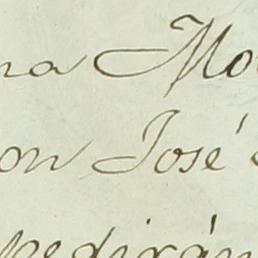 na Mo
on José
pedirán